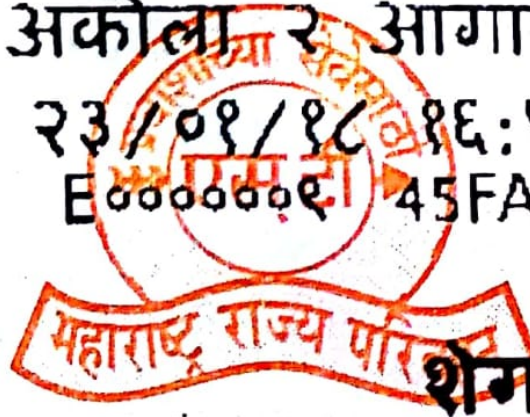 अकोला २ आगा
२३/०१/१८ १६:
E००००००९ 45FA
एस.टी
महाराष्ट्र राज्य परिवहन
शेग